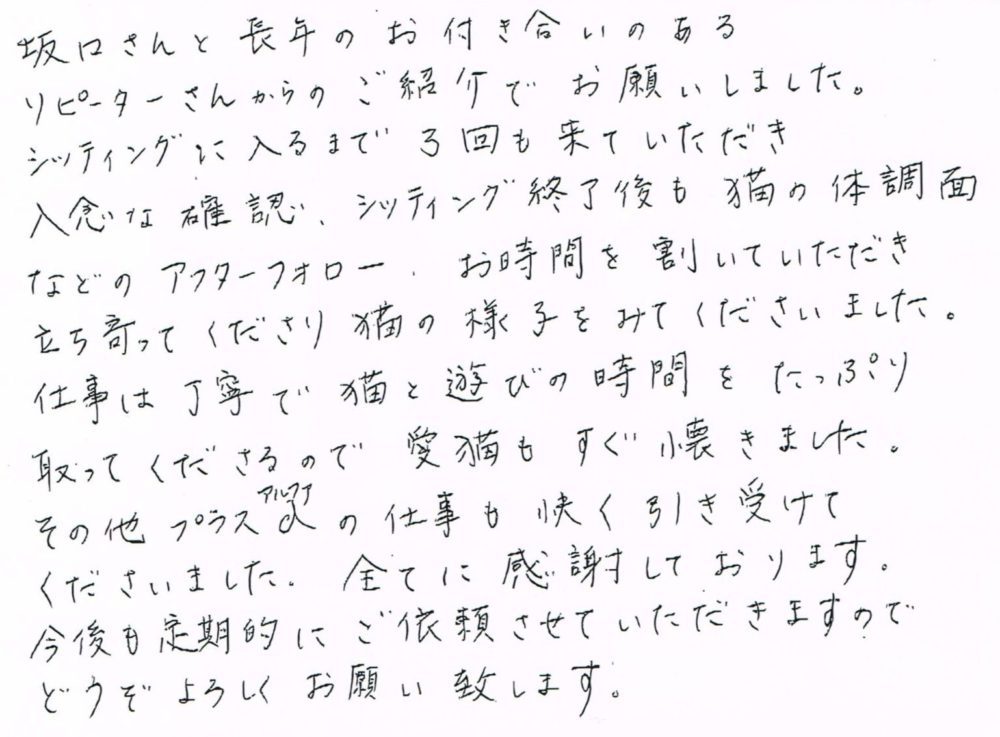 坂口さんと長年のお付き合いのある
リピーターさんからのご紹介でお願いしました。
シッティングに入るまで3回も来ていただき
入念な確認、シッティング終了後も猫の体調面
などのアフターフォロー、お時間を割いていただき
立ち寄ってくださり猫の様子をみてくださいました。
仕事は丁寧で猫と遊びの時間をたっぷり
取ってくださるので愛猫もすぐ懐きました。
その他プラスα(アルファ)の仕事も快く引き受けて
くださいました。全てに感謝しております。
今後も定期的にご依頼させていただきますので
どうぞよろしくお願い致します。